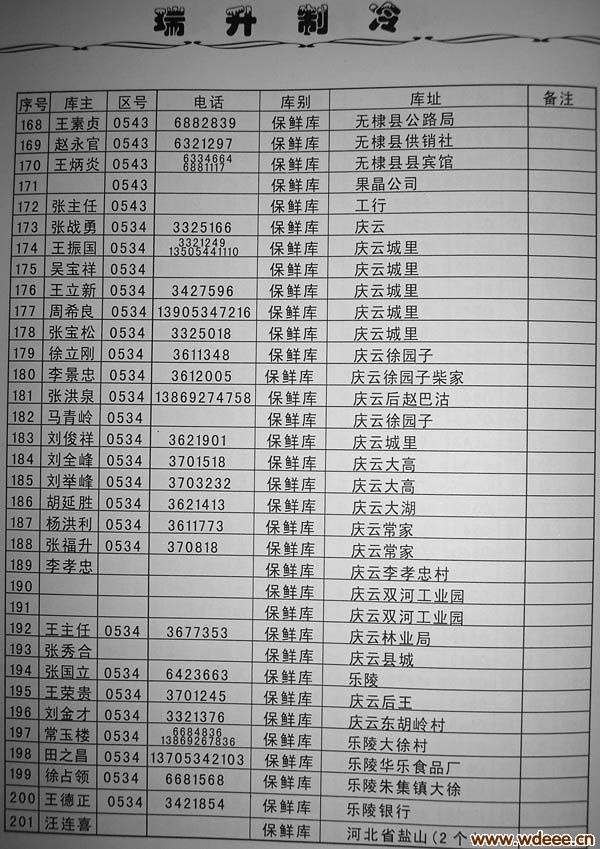 瑞升制冷
序号 库主 区号 电话 库别 库址 备注
168 王素贞 0543 6882839 保鲜库 无棣县公路局
169 赵永官 0543 6321297 保鲜库 无棣县供销社
170 王炳炎 0543 6334664 6881117 保鲜库 无棣县县宾馆
171 0543 保鲜库 果晶公司
172 张主任 0534 保鲜库 工行
173 张战勇 0534 3325166 保鲜库 庆云
174 王振国 0534 3321249 13505441110 保鲜库 庆云城里
175 吴宝祥 0534 保鲜库 庆云城里
176 王立新 0534 3427596 保鲜库 庆云城里
177 周希良 0534 13905347216 保鲜库 庆云城里
178 张宝松 0534 3325018 保鲜库 庆云城里
179 徐立刚 0534 3611348 保鲜库 庆云徐园子
180 李景忠 0534 3612005 保鲜库 庆云徐园子柴家
181 张洪泉 0534 13869274758 保鲜库 庆云后赵巴沽
182 马青岭 0534 保鲜库 庆云徐园子
183 刘俊祥 0534 3621901 保鲜库 庆云城里
184 刘全峰 0534 3701518 保鲜库 庆云大高
185 刘举峰 0534 3703232 保鲜库 庆云大高
186 胡延胜 0534 3621413 保鲜库 庆云大湖
187 杨洪利 0534 3611773 保鲜库 庆云常家
188 张福升 0534 370818 保鲜库 庆云常家
189 李孝忠 保鲜库 庆云李孝忠村
190 保鲜库 庆云双河工业园
191 保鲜库 庆云双河工业园
192 王主任 0534 3677353 保鲜库 庆云林业局
193 张秀合 保鲜库 庆云县城
194 张国立 0534 6423663 保鲜库 乐陵
195 王荣贵 0534 3701245 保鲜库 庆云后王
196 刘金才 0534 3321376 保鲜库 庆云东胡岭村
197 常玉楼 0534 6684836 13869267836 保鲜库 乐陵大徐村
198 田之昌 0534 13705342103 保鲜库 乐陵华乐食品厂
199 徐占领 0534 6681568 保鲜库 乐陵朱集镇大徐
200 王德正 0534 3421854 保鲜库 乐陵银行
201 汪连喜 保鲜库 河北省盐山(2个
www.wdeee.cn